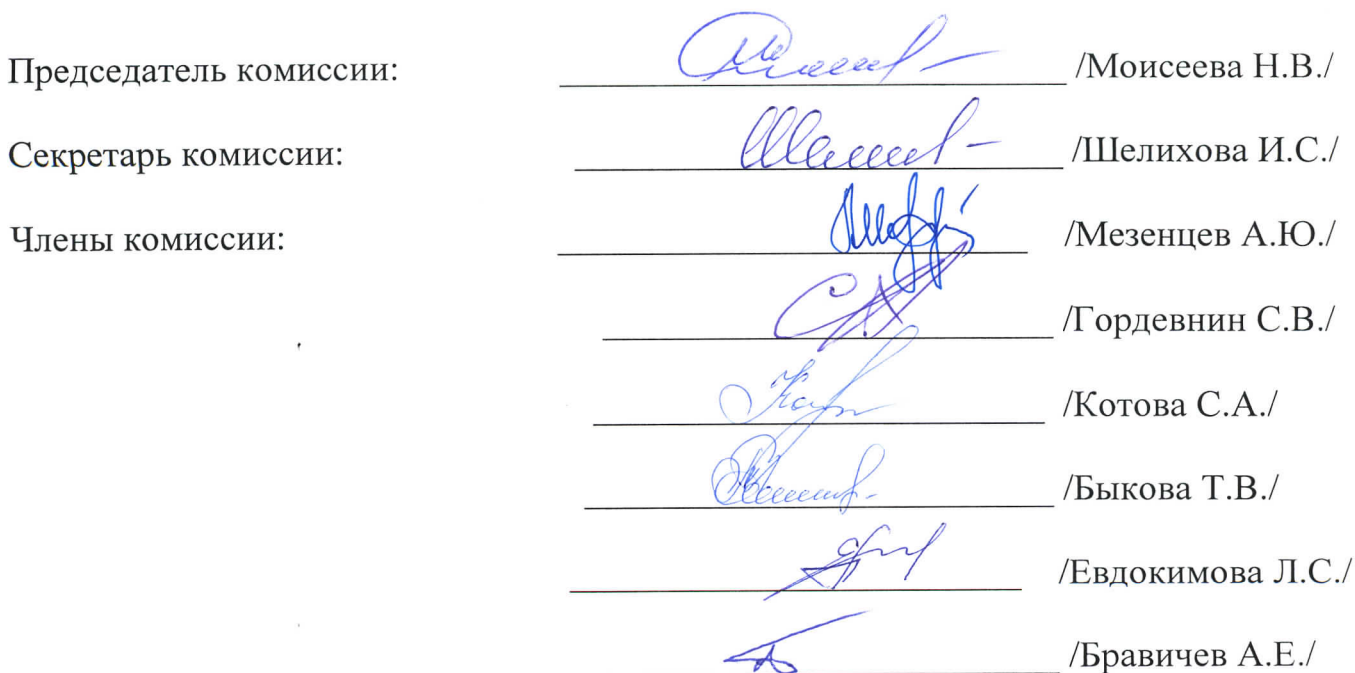 Председатель комиссии: /Моисеева Н.В./
Секретарь комиссии: /Шелихова И.С./
Члены комиссии: /Мезенцев А.Ю./
/Гордевнин С.В./
/Котова С.А./
/Быкова Т.В./
/Евдокимова Л.С./
/Бравичев А.Е./